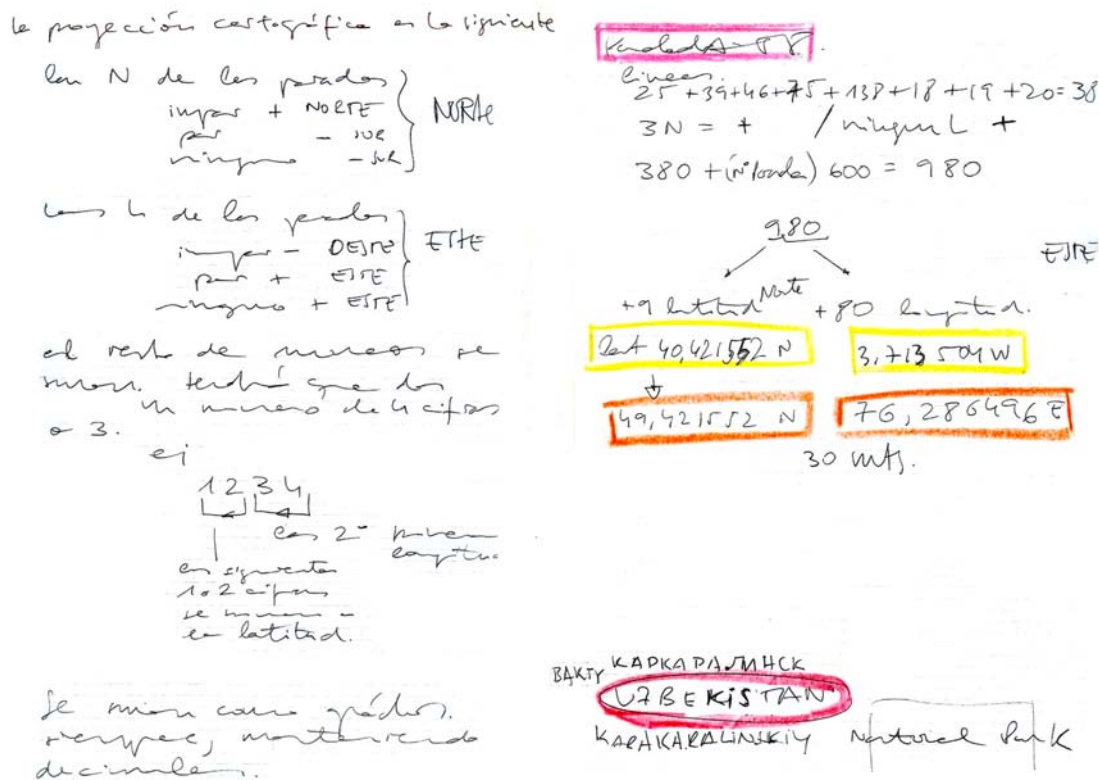 la proyección cartográfica es la siguiente
las N de las paradas
impar + NORTE
par - SUR
ninguno - SUR
NORTE
las L de las paradas
impar - OESTE
par + ESTE
ninguno + ESTE
ESTE
el resto de numeros se
suman. tendrá que dar
un numero de 4 cifras
o 3.
ej
1234
las 2ª
longitud
las siguientes
1 o 2 cifras
se suman
en latitud.
Se suman como grados.
siempre, manteniendo
decimales.
lineas.
25 +39+46+75+138+18+19+20=38
3N = + / ningun L +
380 + (nº parada) 600 = 980
980
ESTE
+9 latitud Norte
+80 longitud.
40,421552 N
3,713504 W
49,421552 N
76,286496 E
30 mts.
BAKTY
UZBEKISTAN
KARAKARALINSKIY Natural Park